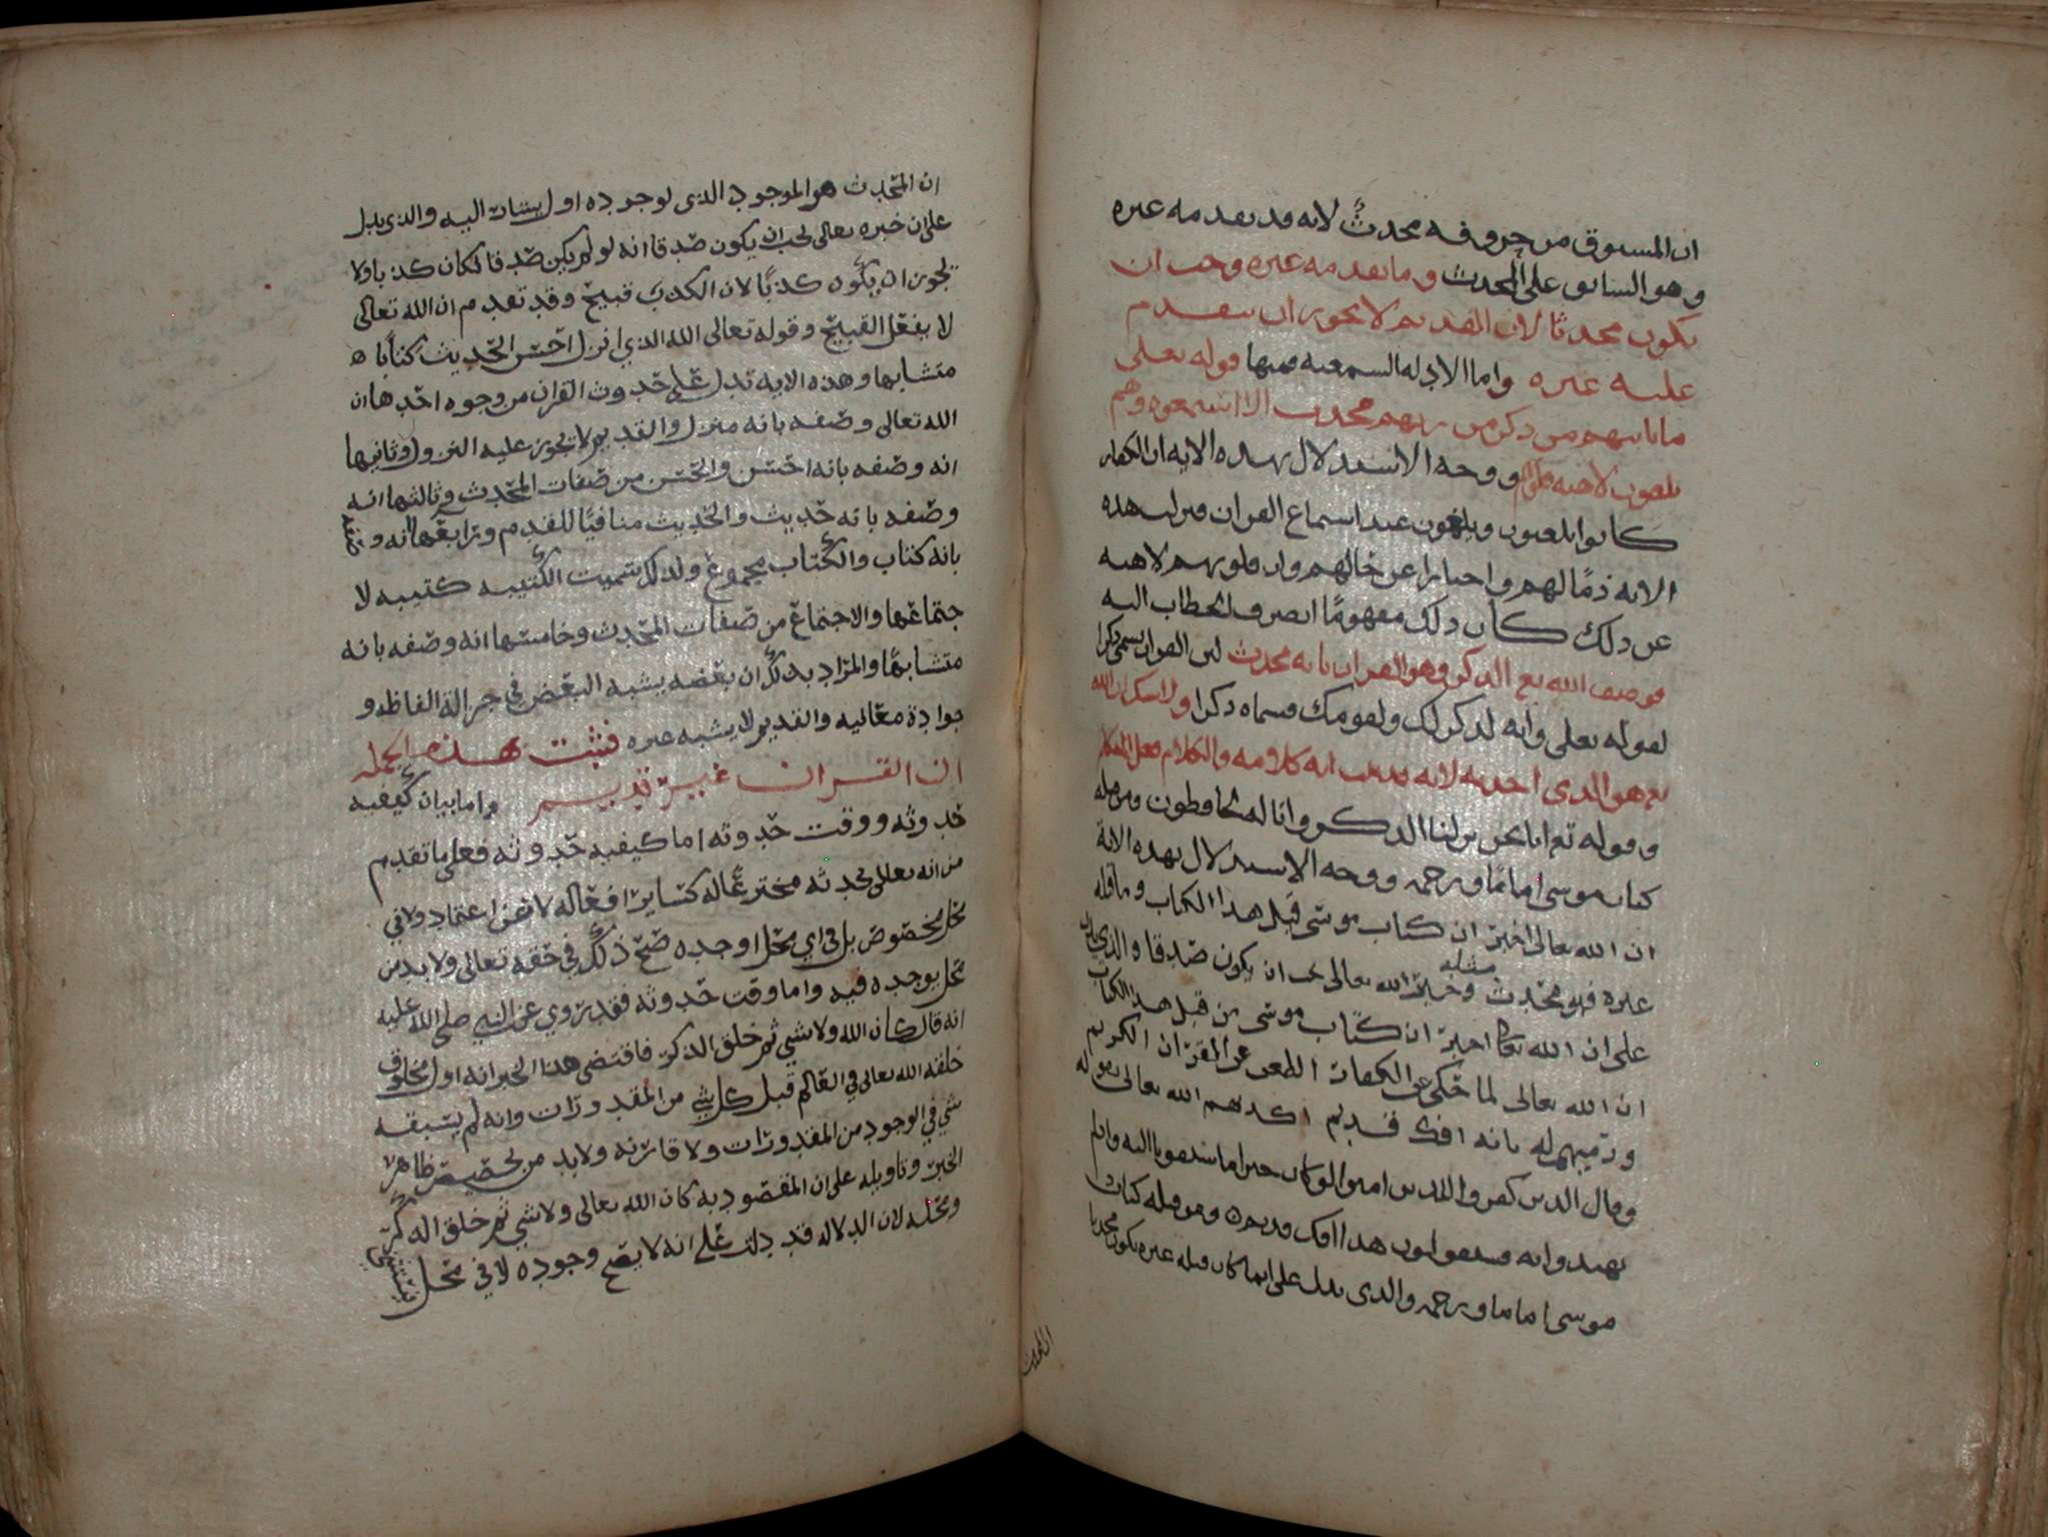 ان المسبوق من حروفه محدثٌ لانه قد تقدمه غيره
وهو السابق على المحدث وما تقدمه غيره وجب ان
يكون محدثا لان القديم لا يجوز ان يتقدم
عليه غيره واما الادله السمعيه فمنها قوله تعلى
ما ياتيهم من ذكر من ربهم محدث الا استمعوه وهم
يلعبون لاهيه قلوبهم ووجه الاستدلال بهذه الايه ان الكفار
كانوا يلعبون ويلهون عند استماع القران فنزلت هذه
الايه ذمًا لهم واخبارا عن حالهم وان قلوبهم لاهيه
عن ذلك كان ذلك مفهومًا انصرف الخطاب اليه
فوصف الله تع الذكر وهو القران بانه محدث لان القران يسمى ذكرا
لقوله تعلى وانه لذكر لك ولقومك فسماه ذكرا ولا شك ان الله
تع هو الذى احدثه لانه قد ثبت انه كلامه والكلام فعل المتكلم
وقوله تع انا نحن نزلنا الذكر وانا له لحافظون ومن قبله
كتاب موسى اماما ورحمه ووجه الاستدلال بهذه الاية
ان الله تعالى اخبر ان كتاب موسى قبل هذا الكتاب وما قبله
غيره فهو محدث وخبر الله تعالى يجب ان يكون صدقا والذي يدل
مثله
على ان الله تعالى اخبر ان كتاب موسى من قبل هذا الكتاب
ان الله تعالى لما حكى عن الكفار الطعن على القران الكريم
ورميهم له بانه افك قديم اكذبهم الله تعالى بقوله
وقال الذين كفروا للذين امنوا لو كان خيرا ما سبقونا اليه واذ لم
يهتدوا به فسيقولون هذا افك قديم ومن قبله كتاب
موسى اماما ورحمه والذى يدل على ان ما كان قبله غيره يكون محدثا
ان المحدث
ان المحدث هو الموجود الذى لوجوده اول يشار اليه والذى يدل
على ان خبره تعالى يجب ان يكون صدقا انه لو لم يكن صدقا لكان كذبا ولا
يجوز ان يكون كذبًا لان الكذب قبيح وقد تقدم ان الله تعالى
لا يفعل القبيح وقوله تعالى الله الذي انزل احسن الحديث كتابا
متشابها وهذه الايه تدل على حدوث القران من وجوه احدها ان
الله تعالى وصفه بانه منزل والقديم لا يجوز عليه النزول وثانيها
انه وصفه بانه احسن والحسن من صفات المحدث وثالثها انه
وصفه بانه حديث والحديث منافيًا للقدم ورابعها انه وصفه
بانه كتاب والكتاب مجموع ولذلك سميت الكتيبه كتيبه لا
جتماعها والاجتماع من صفات المحدث وخامسها انه وصفه بانه
متشابهًا والمراد بذلك ان بعضه يشبه البعض في جزالة الفاظه و
جوادة معانيه والقديم لا يشبه غيره فثبت بهذه الجمله
ان القران غير قديم واما بيان كيفيه
حدوثه ووقت حدوثه اما كيفيه حدوثه فعلى ما تقدم
من انه تعالى يحدثه مخترعًا له كساير افعاله لا عن اعتماد ولا في
محل مخصوص بل في اي محل اوجده صح ذلك في حقه تعالى ولا بد من
محل يوجده فيه واما وقت حدوثه فقد روي عن النبي صلى الله عليه
انه قال كان الله ولا شي ثم خلق الذكر فاقتضى هذا الخبر انه اول مخلوق
خلقه الله تعالى في العالم قبل كل شي من المقدورات وانه لم يسبقه
شي في الوجود من المقدورات ولا قارنه ولا بد من تخصيص ظاهر
الخبر وتاويله على ان المقصود به كان الله تعالى ولا شي ثم خلق الذكر
ومحله لان الدلاله قد دلت على انه لا يصح وجوده لا في محل